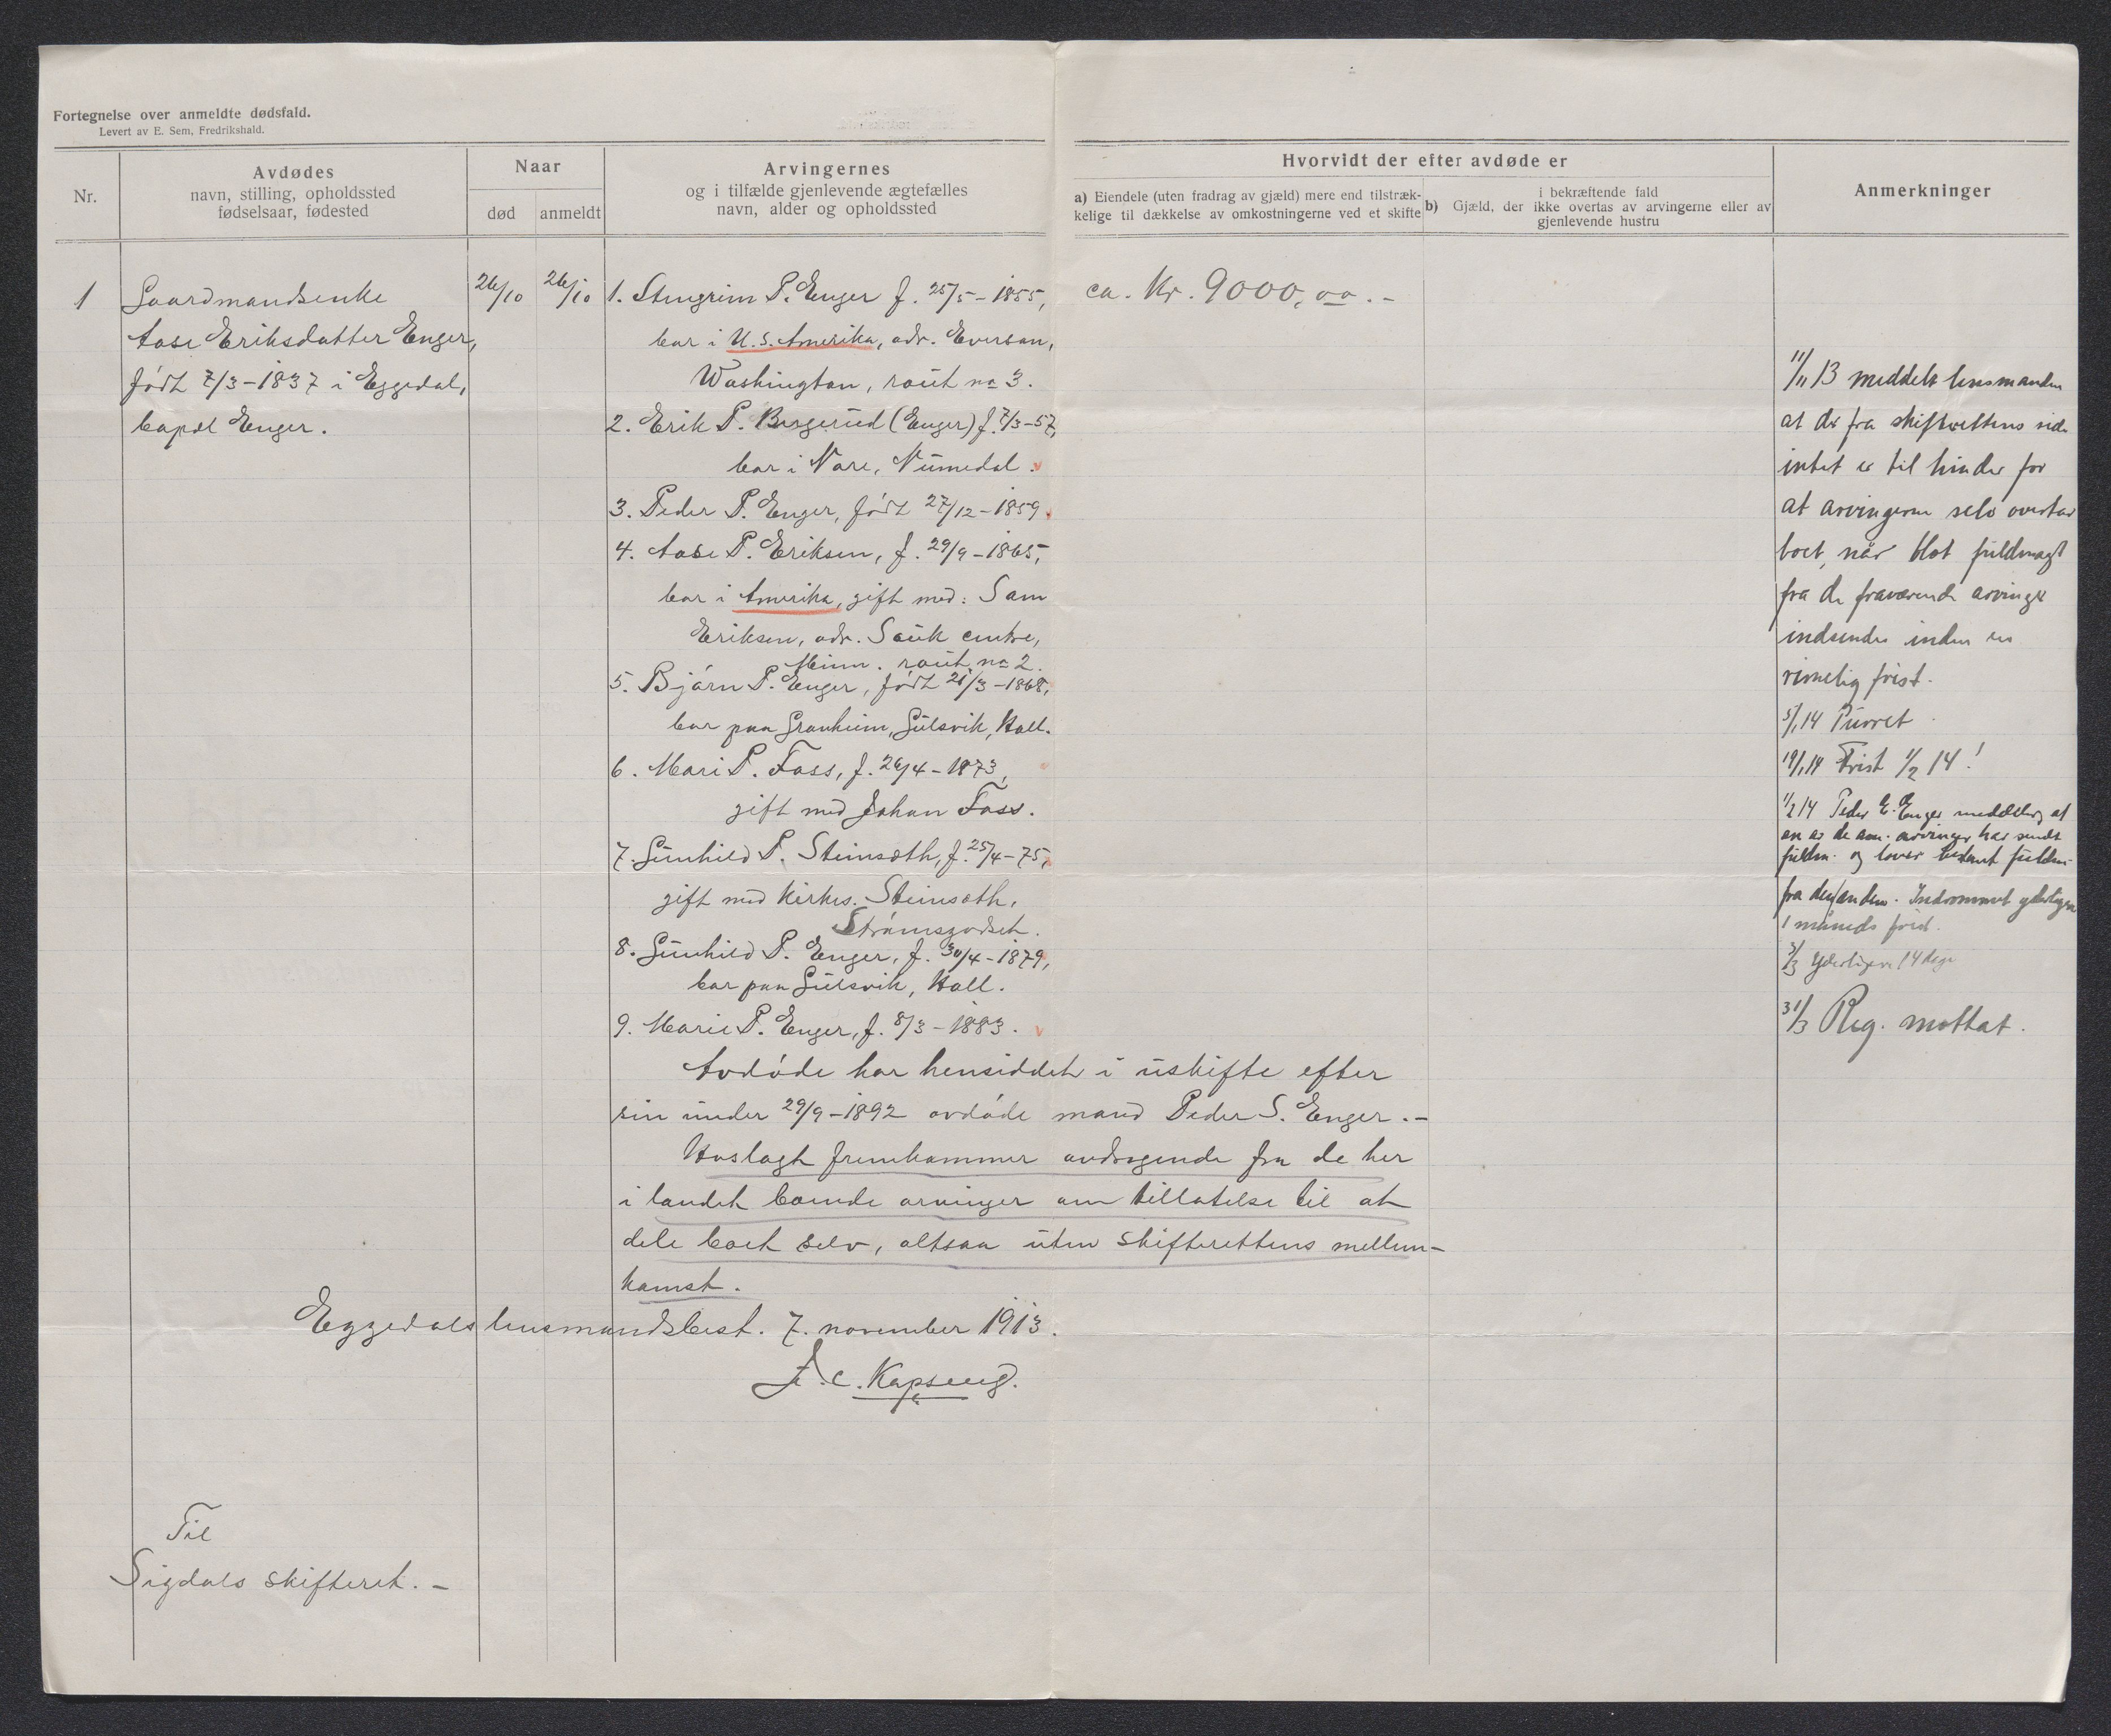 Fortegnelse over anmeldte dødsfald.
Levert av E. Sem, Fredrikshald.
Nr.
Avdødes
navn, stilling, opholdssted
fødselsaar, fødested
Naar
død
anmeldt
Arvingernes
og i tilfælde gjenlevende ægtefælles
navn, alder og opholdssted
Hvorvidt der efter avdøde er
a) Eiendele (uten fradrag av gjæld) mere end tilstræk-
kelige til dækkelse av omkostningerne ved et skifte
i bekræftende fald
b) Gjæld, der ikke overtas av arvingerne eller av
gjenlevende hustru
Anmerkninger
1
Gaardmandsenke
Aase Eriksdatter Enger,
født 7/3-1837 i Eggedal,
bopæl Enger.
26/10
26/10
1. Stengrim P. Enger f. 25/5-1855,
bor i U.S. Amerika, adr. Everson,
Washington, rout no 3.
2. Erik P. Borgerud (Enger) f. 7/3-57,
bor i Nore, Numedal.
3. Peder P. Enger, født 27/12-1859.
4. Aase P. Eriksen, f. 29/9-1865,
bor i Amerika, gift med: Sam
Eriksen, adr. Sauk centre,
Minn. rout no 2.
5. Bjørn P. Enger, født 21/3-1868,
bor paa Granheim, Gulsvik, Hall.
6. Mari P. Foss, f. 26/4-1873,
gift med Johan Foss.
7. Gunhild P. Steinsæth, f. 25/4-75,
gift med kirkes. Steinsæth,
Strømsgodset.
8. Gunhild P. Enger, f. 30/4-1879,
bor paa Gulsvik, Hall.
9. Marie P. Enger, f. 8/3-1883.
Avdøde har hensiddet i uskifte efter
sin under 29/9-1892 avdøde mand Peder S. Enger.-
Vedlagt fremkommer andragende fra de her
i landet boende arvinger om tillatelse til at
dele boet selv, altsaa uten skifterettens mellem-
komst.
Eggedals lensmandsbest. 7. november 1913.
F.C. Kopseng.
Til
Sigdals skifteret.-
ca. Kr. 9000,00.-
11/11 13 meddelt lensmanden
at der fra skifterettens side
intet er til hinder for
at arvingerne selv overtar
boet, når blot fuldmagt
fra de fraværende arvinger
indsendes inden en
rimelig frist.
5/1 14 Purret
19/1 14 Frist 1/2 14!
1/2 14 Peder E. Enger meddeler, at
en av de am. arvinger har sendt
fuldm. og lover bestemt fuldm.
fra den anden. Indrømmet yderligere
1 måneds frist.
3/3 Yderligere 14 dage
31/3 Reg. mottat.